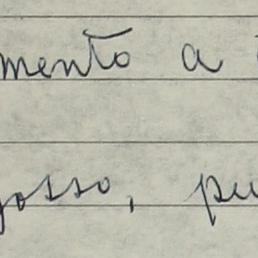 mento a
gosso, pu